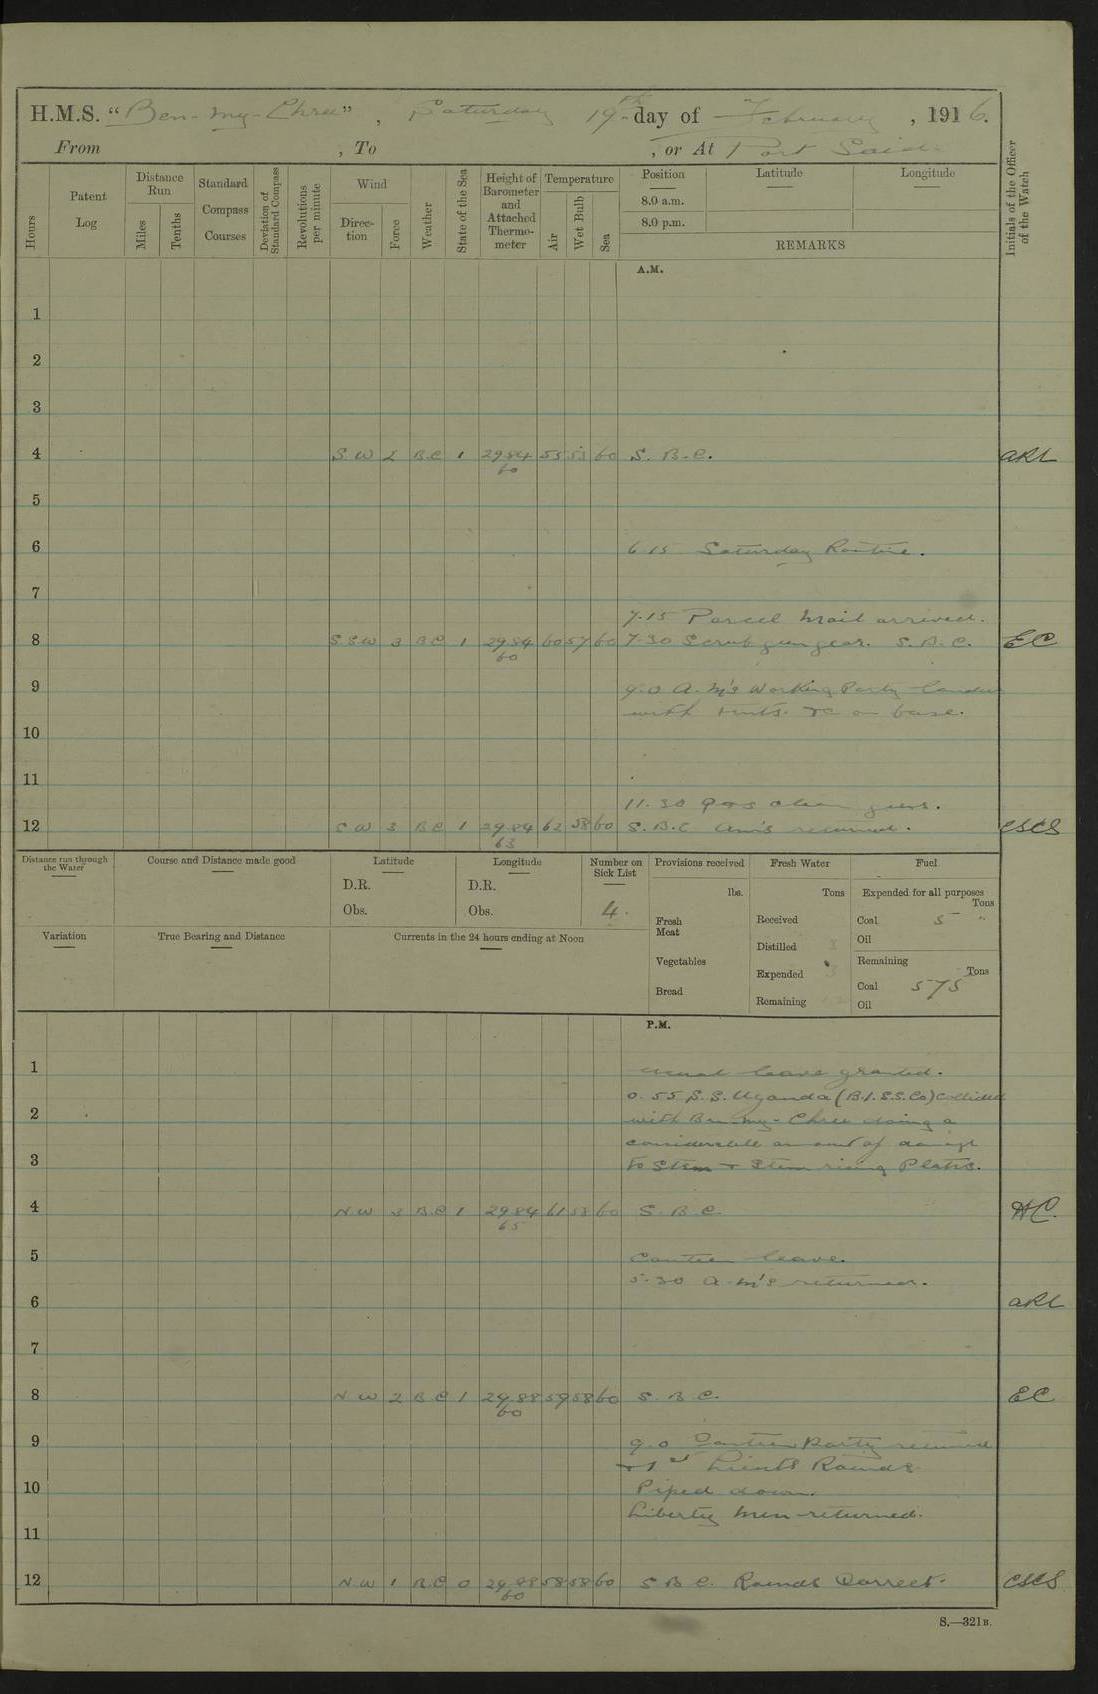 H.M.S. "Ben-my-Chree", Saturday 19th day of February, 1916.
From , To , or At Port Said
Hours
Patent Log
Distance Run
Miles
Tenths
Standard Compass Courses
Deviation of Standard Compass
Revolutions per minute
Wind
Direction
Force
Weather
State of the Sea
Height of Barometer and Attached Thermometer
Temperature
Air
Wet Bulb
Sea
Position
8.0 a.m.
8.0 p.m.
Latitude
Longitude
REMARKS
Initials of the Officer of the Watch
A.M.
1
2
3
4 S W 2 B.C 1 29.84 55 53 60 S. B.C. ARL
60
5
6 6.15 Saturday Routine.
7
7.15 Parcel Mail arrived.
8 S S W 3 B C 1 29.84 60 57 60 7.30 Scrub gun gear. S. B. C. EC
60
9 9.0 A.M's Working Party landed
with tents &c on base.
10
11
11.30 clean guns.
12 S W 3 B C 1 29.84 62 58 60 S. B.C Am's returned. CSCS
63
Distance run through the Water
Course and Distance made good
Latitude
D.R.
Obs.
Longitude
D.R.
Obs.
Number on Sick List
4.
Provisions received
lbs.
Fresh Meat
Vegetables
Bread
Fresh Water
Tons
Received
Distilled
Expended 3
Remaining
Fuel
Expended for all purposes
Tons
Coal 5 "
Oil
Remaining
Tons
Coal 575
Oil
Variation
True Bearing and Distance
Currents in the 24 hours ending at Noon
P.M.
1 usual leave granted.
0.55 S.S. Uganda (B.I.S.S.Co) collided
2 with Ben-my-Chree doing a
considerable amount of damage
3 to Stem & Stem rising Plates.
4 N W 3 B.C 1 29.84 61 58 60 S. B C. HC.
65
5 Canteen leave.
5.30 A.M's returned.
6 ARL
7
8 N W 2 B C 1 29.88 59 58 60 S. B C. EC
60
9 9.0 Canteen Party returned
& 1st Lieuts Rounds
10 Piped down.
Liberty men returned.
11
12 N W 1 B.C 0 29.88 58 58 60 S B C. Rounds Correct. CSCS
60
S.—321B.